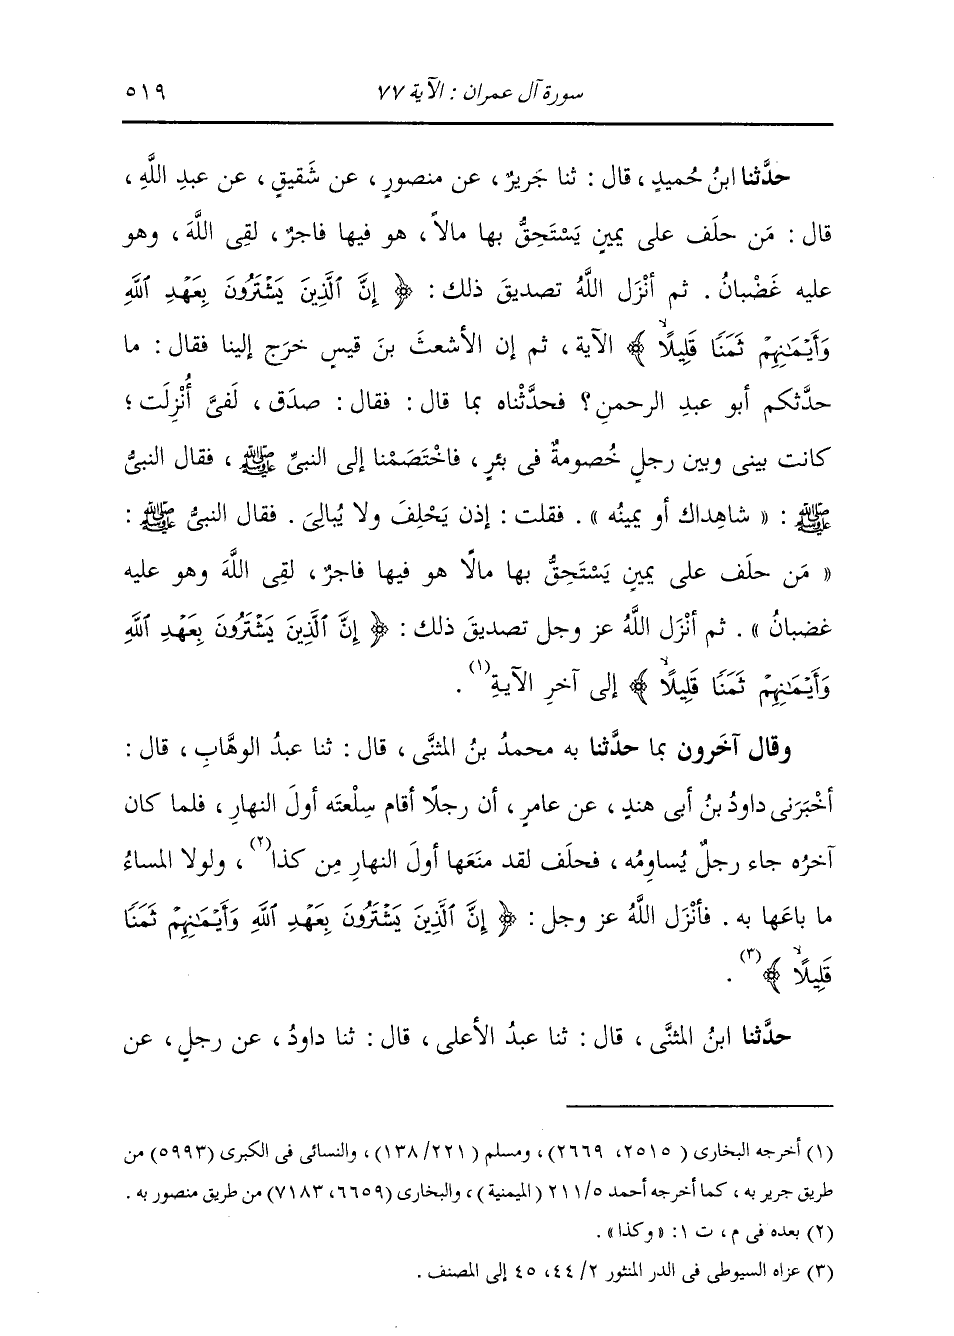 سورة آل عمران : الآية ٧٧ ٥١٩
حدَّثنا ابنُ حُميدٍ ، قال : ثنا جَريرٌ ، عن منصورٍ ، عن شَقيقٍ ، عن عبدِ اللَّهِ ،
قال : مَن حلَف على يمينٍ يَسْتَحِقُّ بها مالاً ، هو فيها فاجرٌ ، لقِى اللَّهَ ، وهو
عليه غَضْبانُ . ثم أنْزَل اللَّهُ تصديقَ ذلك : ﴿ إِنَّ ٱلَّذِينَ يَشْتَرُونَ بِعَهْدِ ٱللَّهِ
وَأَيْمَـٰنِهِمْ ثَمَنًا قَلِيلًا ﴾ الآية ، ثم إن الأشعثَ بنَ قيسٍ خرَج إلينا فقال : ما
حدَّثكم أبو عبدِ الرحمنِ ؟ فحدَّثْناه بما قال : فقال : صدَق ، لَفىَّ أُنْزِلَت ؛
كانت بينى وبين رجلٍ خُصومةٌ فى بئرٍ ، فاخْتَصَمْنا إلى النبىِّ ﷺ ، فقال النبىُّ
ﷺ : « شاهِداك أو يمينُه » . فقلت : إذن يَحْلِفَ ولا يُبالِىَ . فقال النبىُّ ﷺ :
« مَن حلَف على يمينٍ يَسْتَحِقُّ بها مالًا هو فيها فاجرٌ ، لقِى اللَّهَ وهو عليه
غضبانُ » . ثم أنْزَل اللَّهُ عز وجل تصديقَ ذلك : ﴿ إِنَّ ٱلَّذِينَ يَشْتَرُونَ بِعَهْدِ ٱللَّهِ
وَأَيْمَـٰنِهِمْ ثَمَنًا قَلِيلًا ﴾ إلى آخرِ الآيةِ(١) .
وقال آخَرون بما حدَّثنا به محمدُ بنُ المثنَّى ، قال : ثنا عبدُ الوهَّابِ ، قال :
أخْبَرَنى داودُ بنُ أبى هندٍ ، عن عامرٍ ، أن رجلًا أقام سِلْعتَه أولَ النهارِ ، فلما كان
آخرُه جاء رجلٌ يُساوِمُه ، فحلَف لقد منَعها أولَ النهارِ مِن كذا(٢) ، ولولا المساءُ
ما باعَها به . فأنْزَل اللَّهُ عز وجل : ﴿ إِنَّ ٱلَّذِينَ يَشْتَرُونَ بِعَهْدِ ٱللَّهِ وَأَيْمَـٰنِهِمْ ثَمَنًا
قَلِيلًا ﴾(٣) .
حدَّثنا ابنُ المثنَّى ، قال : ثنا عبدُ الأعلى ، قال : ثنا داودُ ، عن رجلٍ ، عن
(١) أخرجه البخارى ( ٢٥١٥، ٢٦٦٩)، ومسلم ( ١٣٨/٢٢١)، والنسائى فى الكبرى (٥٩٩٣) من
طريق جرير به ، كما أخرجه أحمد ٢١١/٥ ( الميمنية )، والبخارى (٦٦٥٩، ٧١٨٣) من طريق منصور به .
(٢) بعده فى م ، ت ١ : « وكذا » .
(٣) عزاه السيوطى فى الدر المنثور ٢/ ٤٤، ٤٥ إلى المصنف .